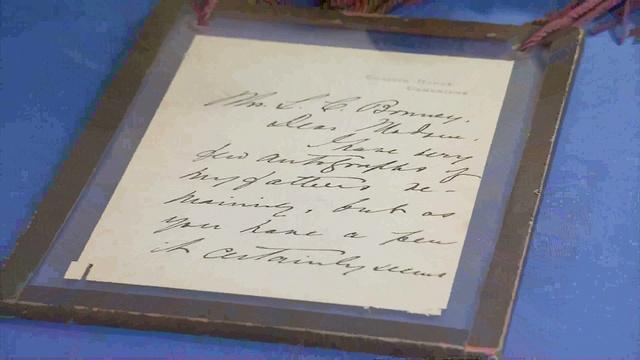 Craigie House
Cambridge
Mrs. L. C. Bonney.
Dear Madam.
I have very
few autographs of
my father's re-
maining, but as
you have a few
it certainly seems